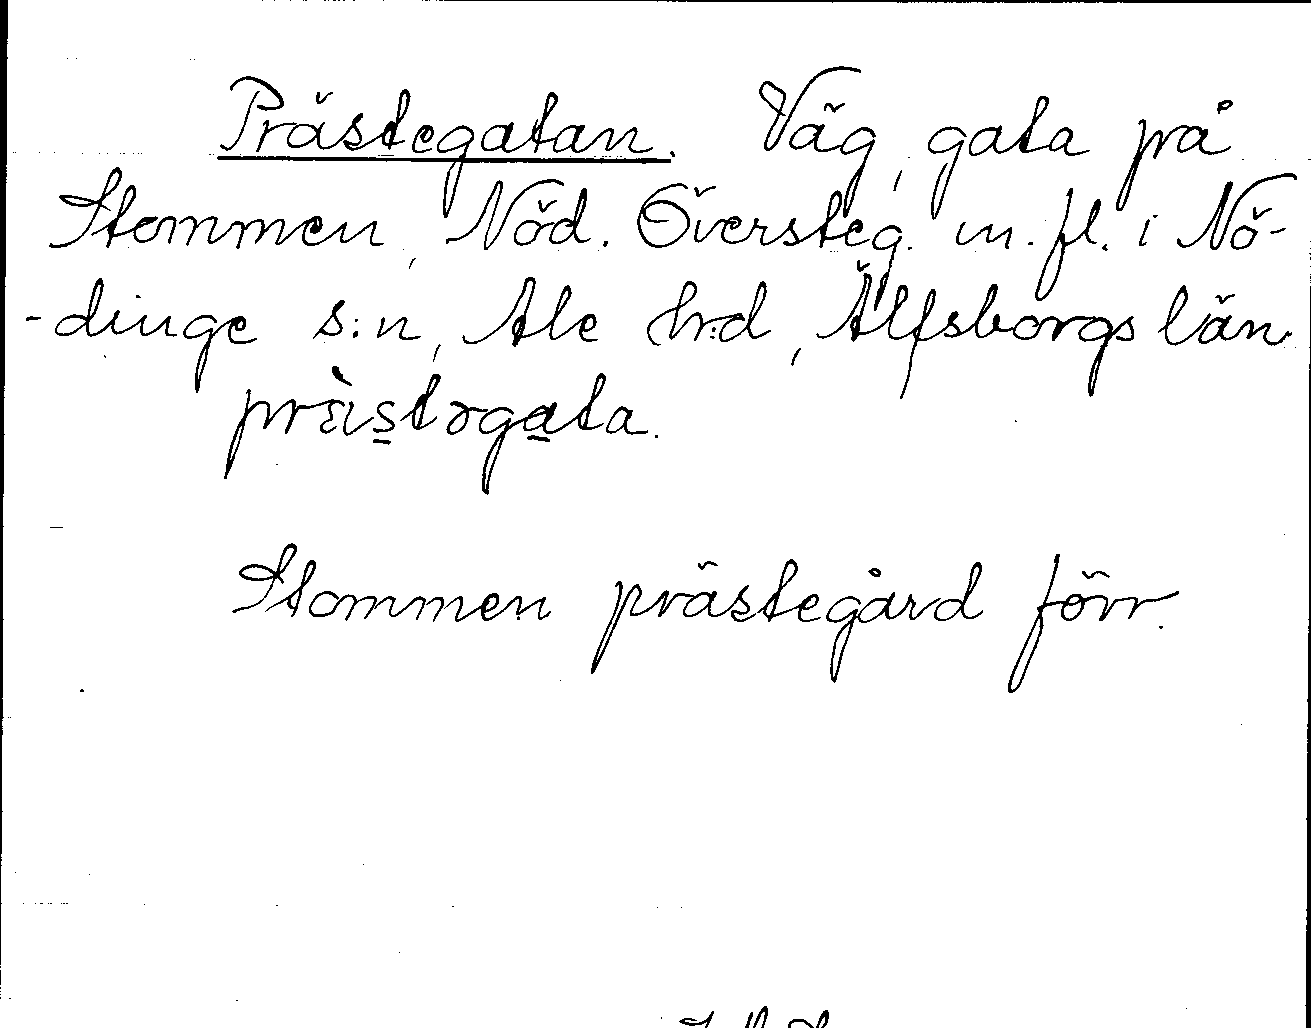 Prästegatan. Väg, gata på
Stommen, Nöd. Översteg. m. fl. i Nö-
-dinge s:n, Ale hrd, Älfsborgs län
prä̀istəgata.
Stommen prästegård förr.